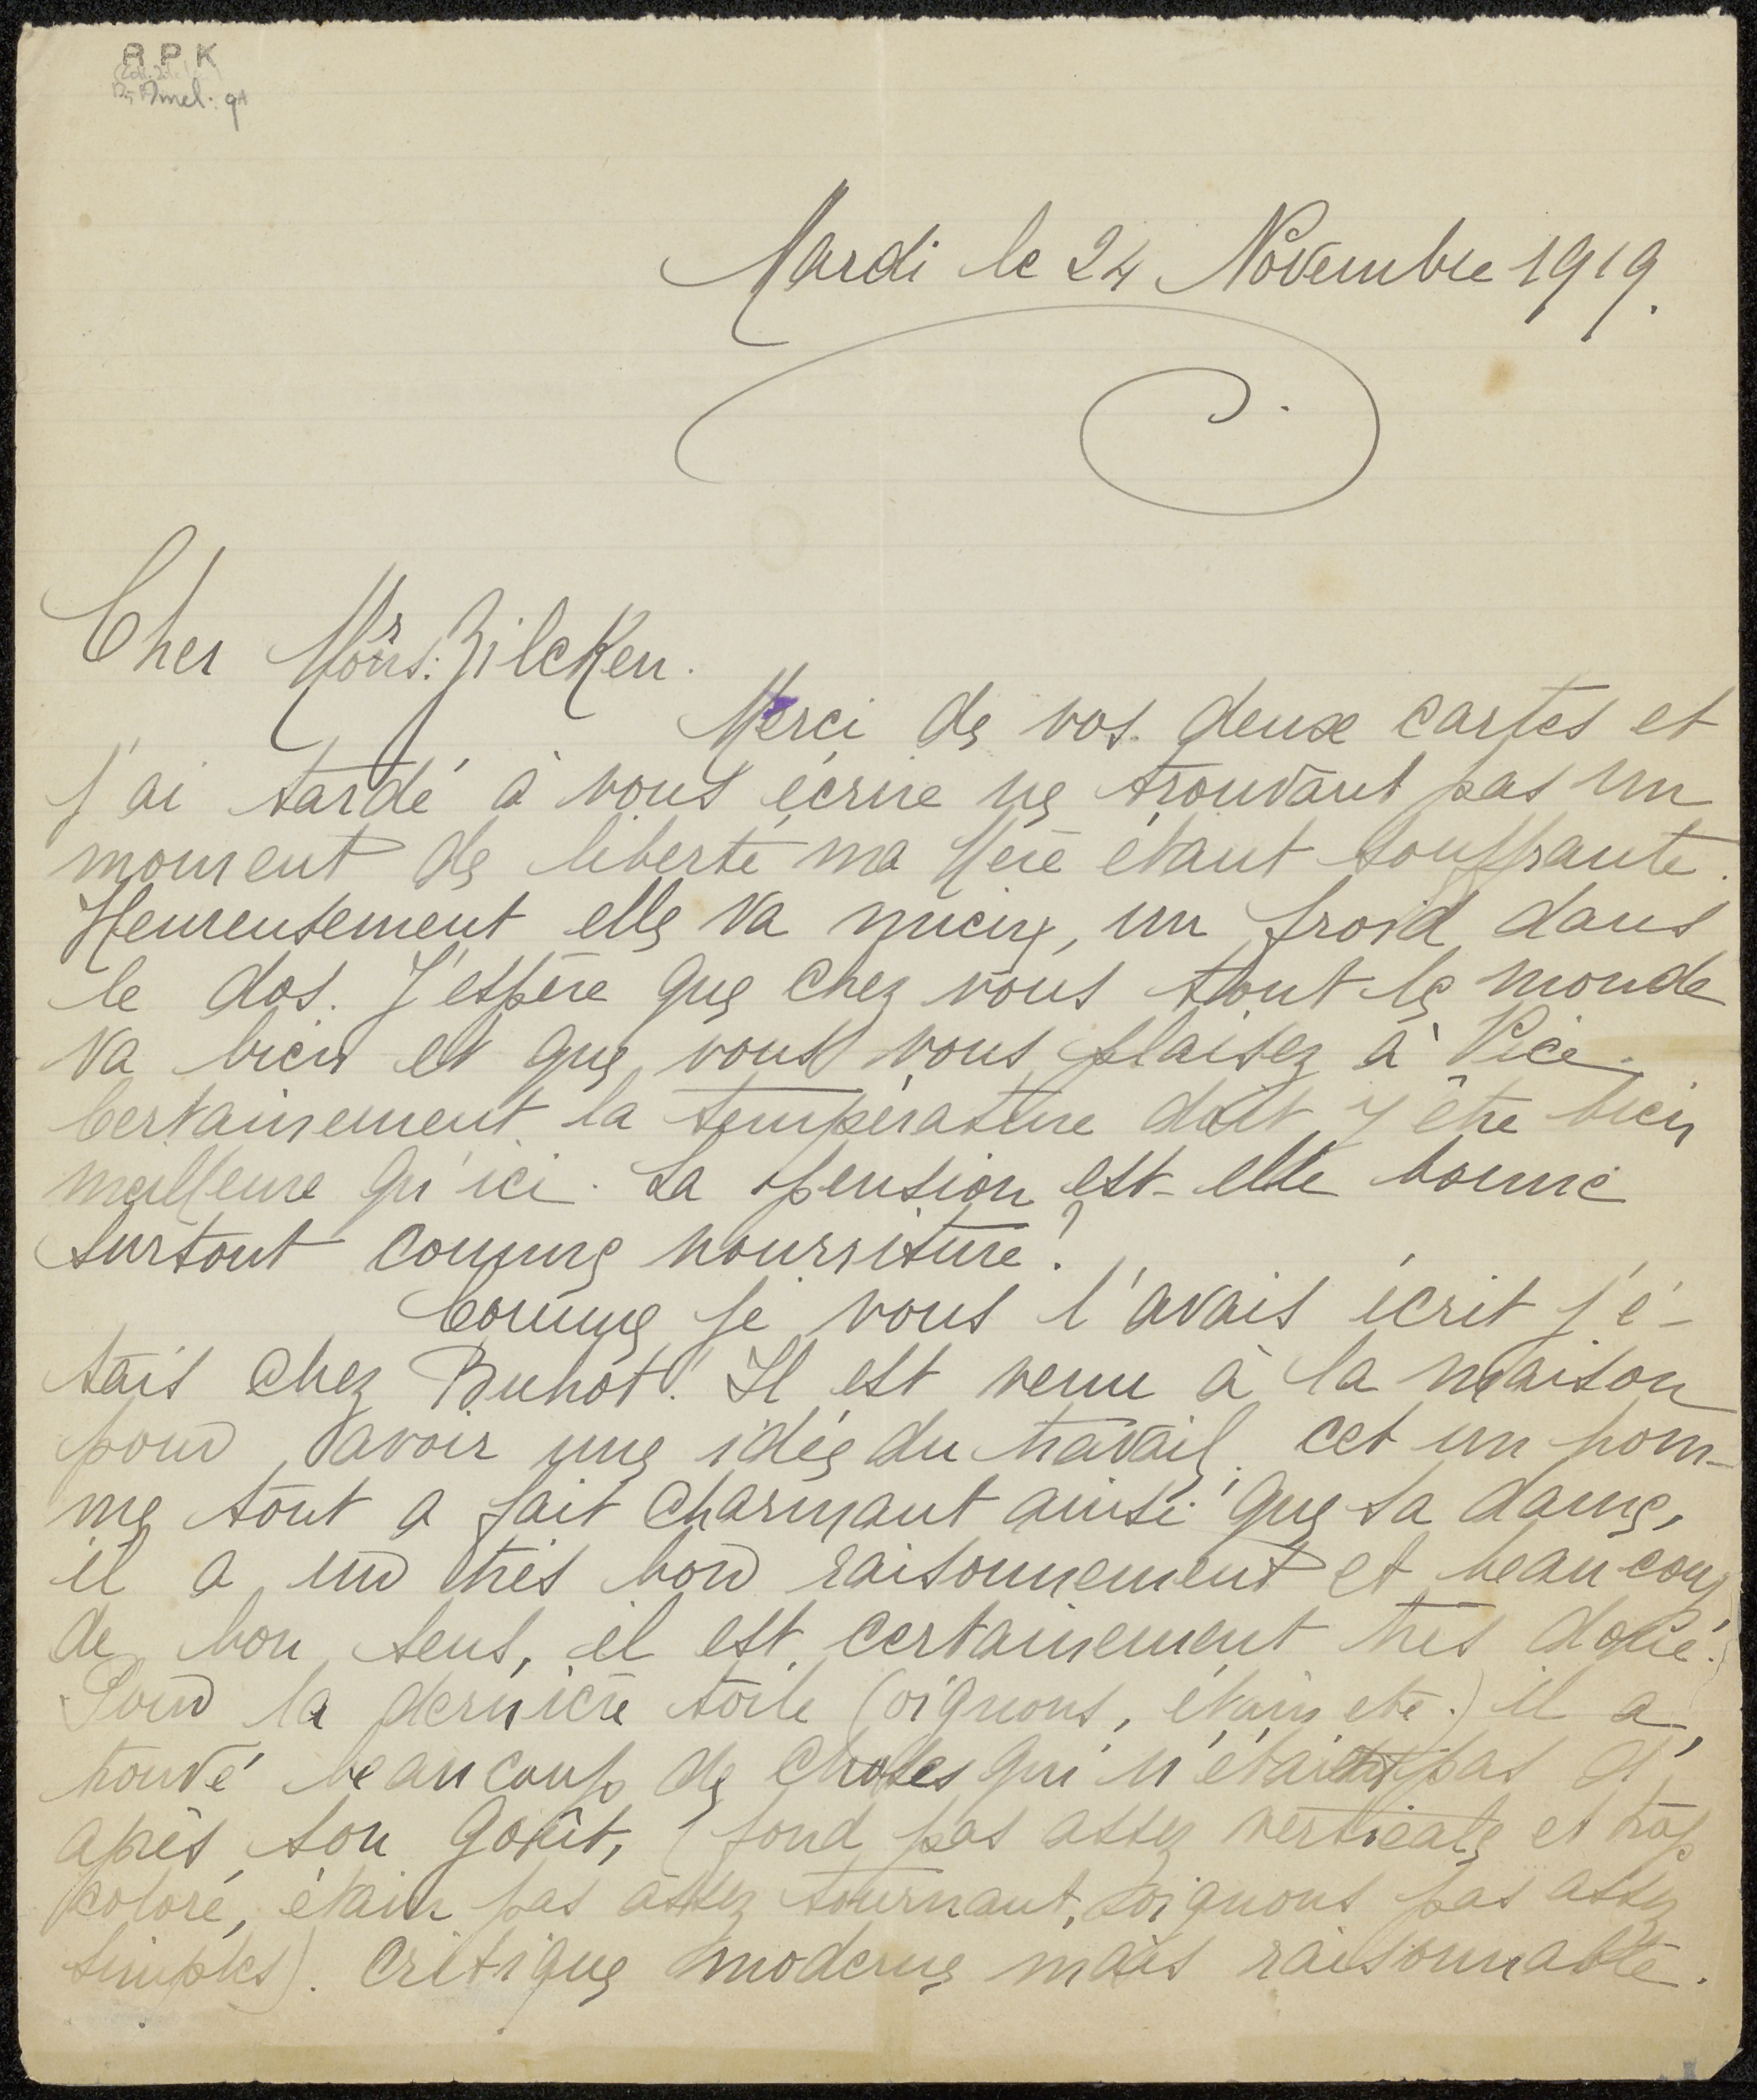 R P K
Mardi le 24 Novembre 1919.
Cher Mr Zilcken.
Merci de vos deux cartes et
j'ai tardé à vous écrire ne trouvant pas un
moment de liberté ma Mère étant souffrante.
Heureusement elle va mieux, un froid dans
le dos. J'espère que chez vous tout le monde
va bien et que vous vous plaisez à Nice.
Certainement la température doit y être bien
meilleure qu'ici. La pension est-elle bonne
surtout comme nourriture?
Comme je vous l'avais écrit j'é-
tais chez Buhot! Il est venu à la maison
pour avoir une idée du travail. cet un hom-
me tout a fait charmant ainsi que sa dame,
il a un très bon raisonnement et beaucoup
de bon sens, il est certainement très doué.
Pour la dernière toile (oignons, étain etc.) il a
trouvé beaucoup de choses qui n'étaient pas d'
après son goût, (fond pas assez verticale et trop
coloré, étain pas assez tournant, oignons pas assez
simples). Critique moderne mais raisonnable.